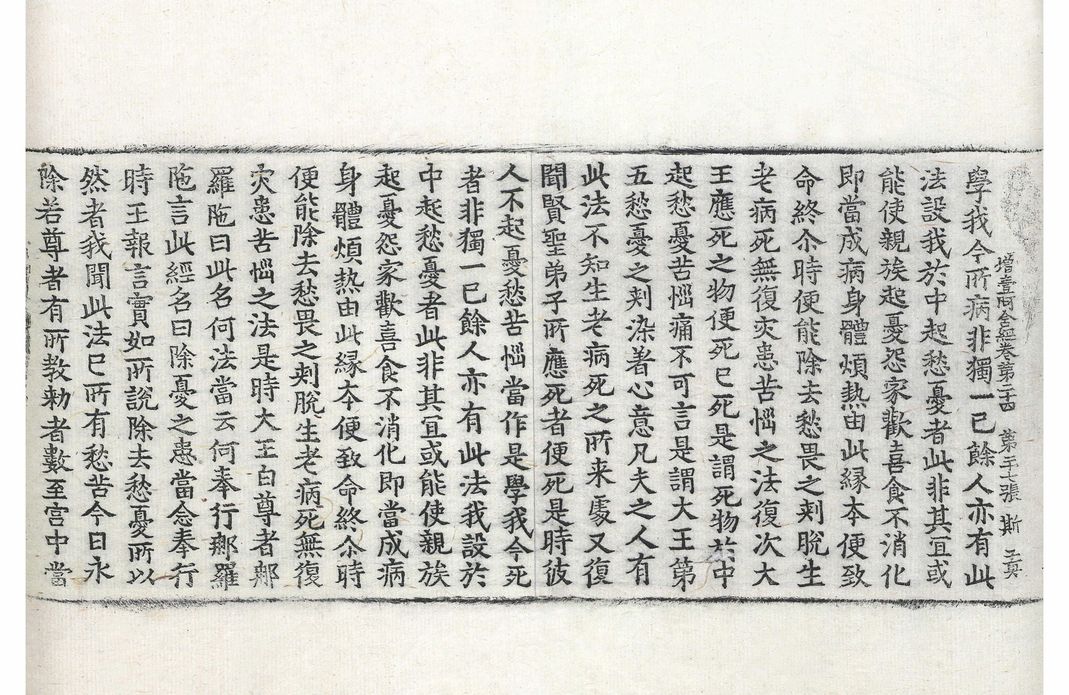 增壹阿含經卷第二十四 第二十七張 斯
學我今所病非獨一己餘人亦有此
法設我於中起愁憂者此非其宜或
能使親族起憂怨家歡喜食不消化
即當成病身體煩熱由此緣本便致
命終尒時便能除去愁畏之刾脫生
老病死無復灾患苦惱之法復次大
王應死之物便死已死是謂死物於中
起愁憂苦惱痛不可言是謂大王第
五愁憂之刾染著心意凡夫之人有
此法不知生老病死之所来處又復
聞賢聖弟子所應死者便死是時彼
人不起憂愁苦惱當作是學我今死
者非獨一己餘人亦有此法我設於
中起愁憂者此非其宜或能使親族
起憂怨家歡喜食不消化即當成病
身體煩熱由此緣本便致命終尒時
便能除去愁畏之刾脫生老病死無復
灾患苦惱之法是時大王白尊者郍
羅陁曰此名何法當云何奉行郍羅
陁言此經名曰除憂之患當念奉行
時王報言實如所說除去愁憂所以
然者我聞此法已所有愁苦今日永
除若尊者有所教勑者數至宮中當